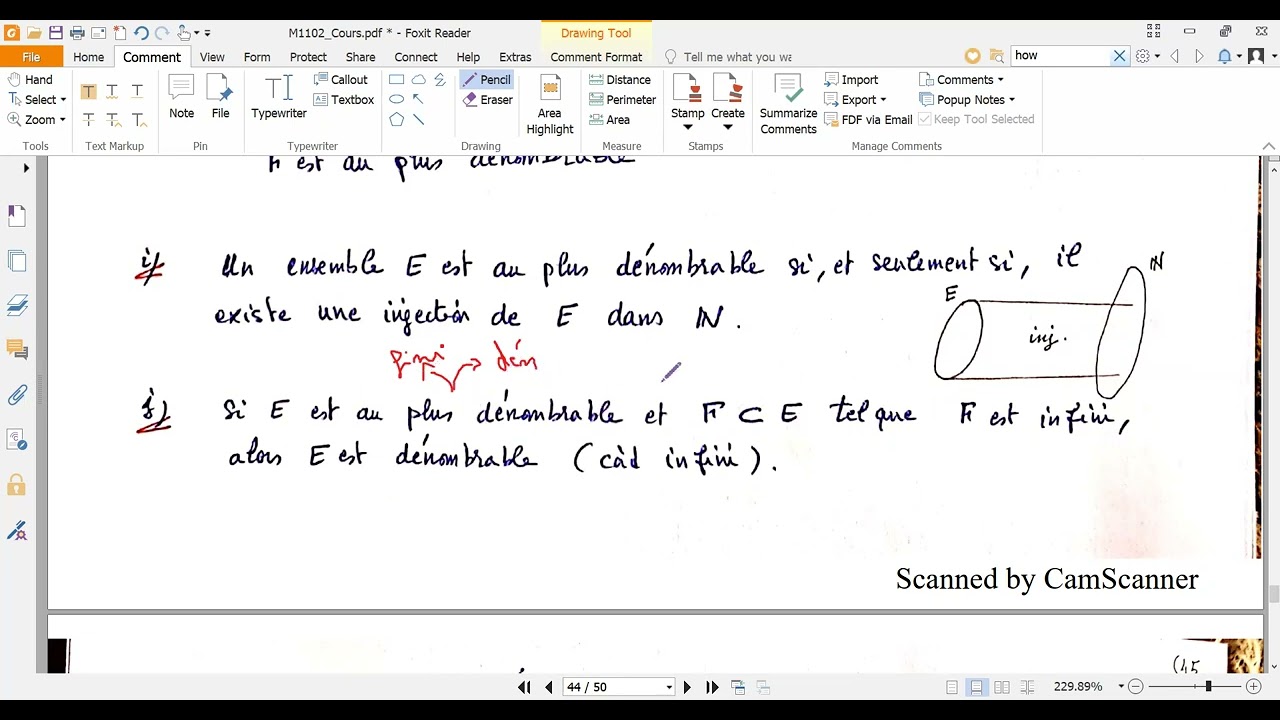 M1102_Cours.pdf * - Foxit Reader
Drawing Tool
File Home Comment View Form Protect Share Connect Help Extras Comment Format Tell me what you wa how
Hand
Select
Zoom
Tools
Text Markup
Note
File
Pin
Typewriter
Callout
Textbox
Typewriter
Pencil
Eraser
Drawing
Area
Highlight
Distance
Perimeter
Area
Measure
Stamp
Create
Stamps
Summarize
Comments
Import
Export
FDF via Email
Comments
Popup Notes
Keep Tool Selected
Manage Comments
F est au plus dénombrable
i) Un ensemble E est au plus dénombrable si, et seulement si, il
existe une injection de E dans ℕ.
E
inj.
ℕ
fini dén
j) Si E est au plus dénombrable et F ⊂ E tel que F est infini,
alors E est dénombrable (càd infini).
Scanned by CamScanner
(45
44 / 50
229.89%